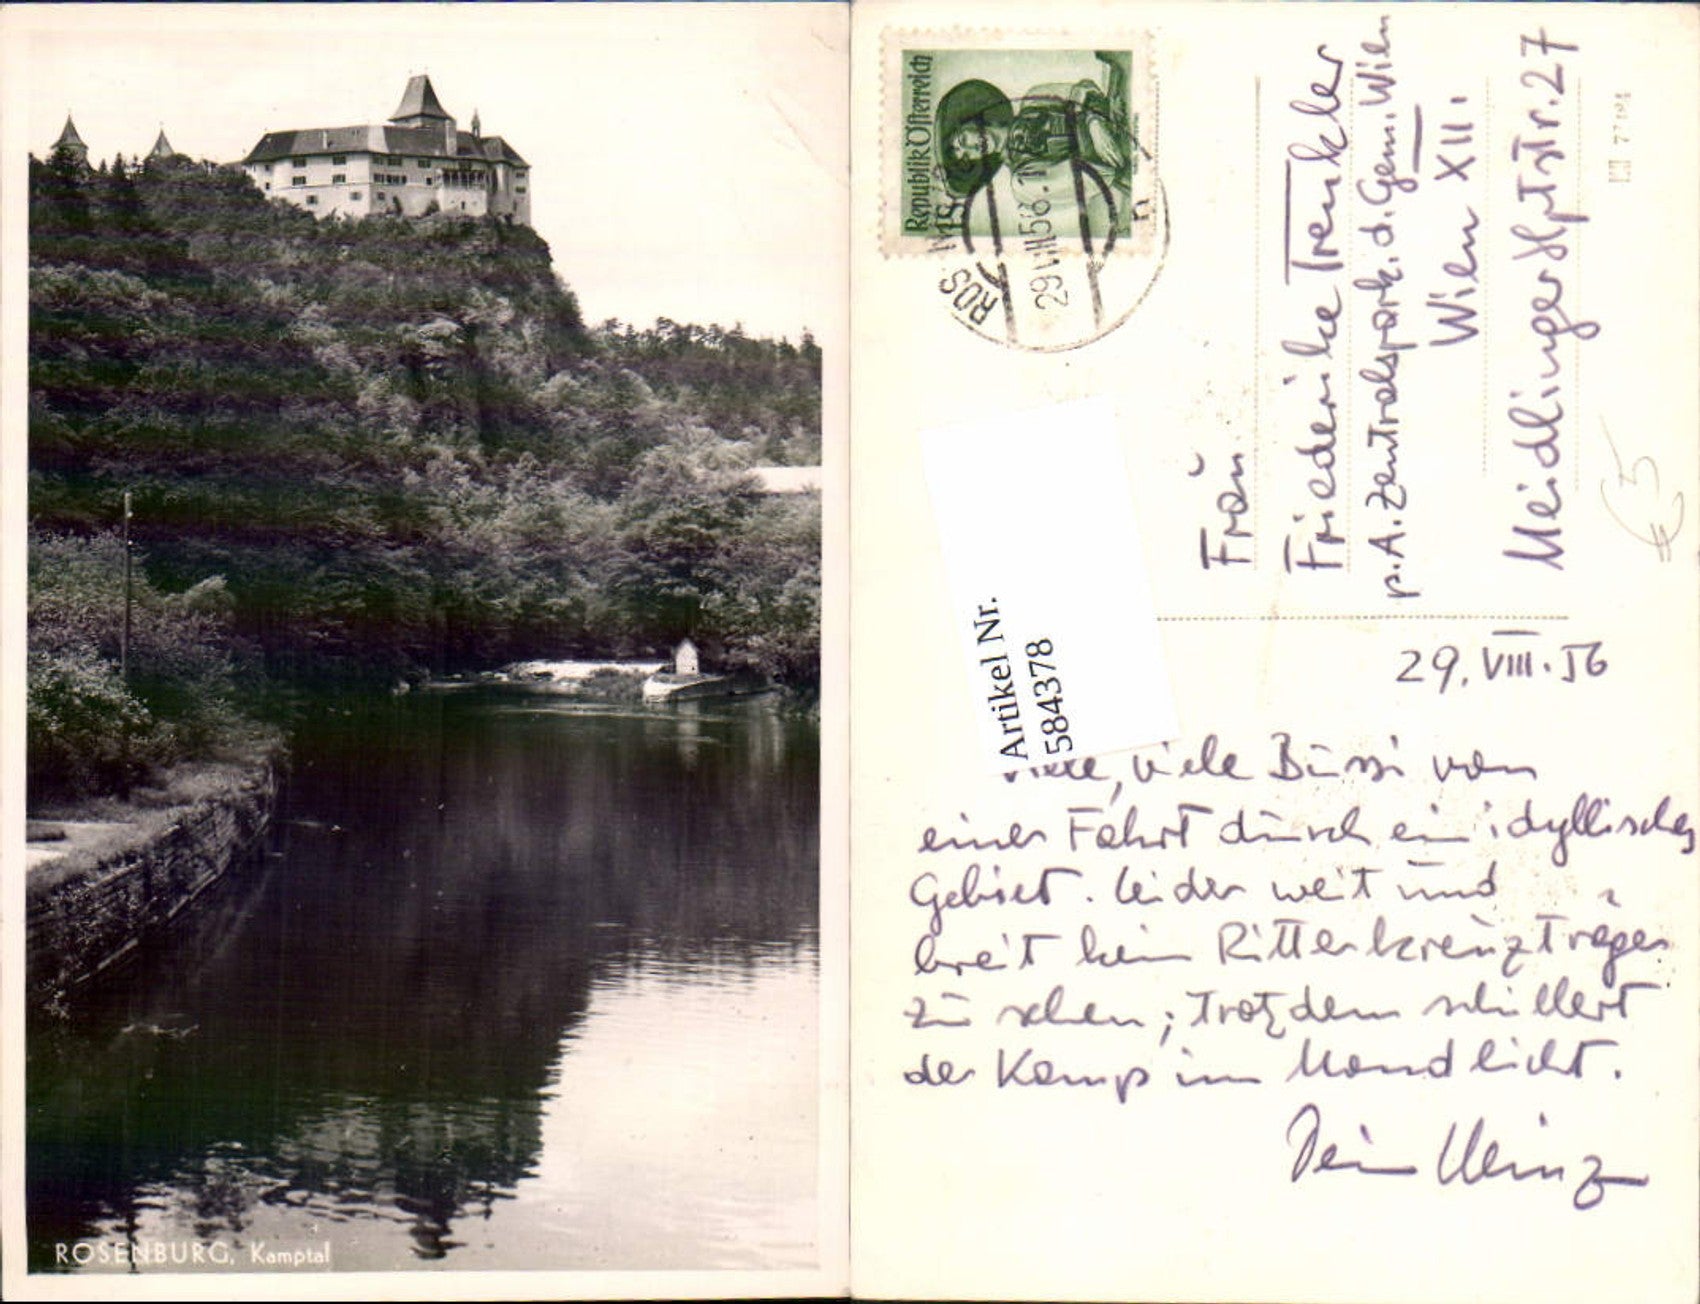 ROSENBURG, Kamptal
Republik Österreich
29 VIII 56
Frau
Friederike Trenkler
p.A. Zentralspark. d. Gem. Wien
Wien XII.
Meidlinger Hptstr. 27
€ 5
Artikel Nr.
584378
29. VIII. 56
viele Bussi von
einer Fahrt durch ein idyllisches
Gebiet. Leider weit und
breit kein Ritterkreuzträger
zu sehen; trotzdem schillert
der Kamp im Mondlicht.
Dein Heinz